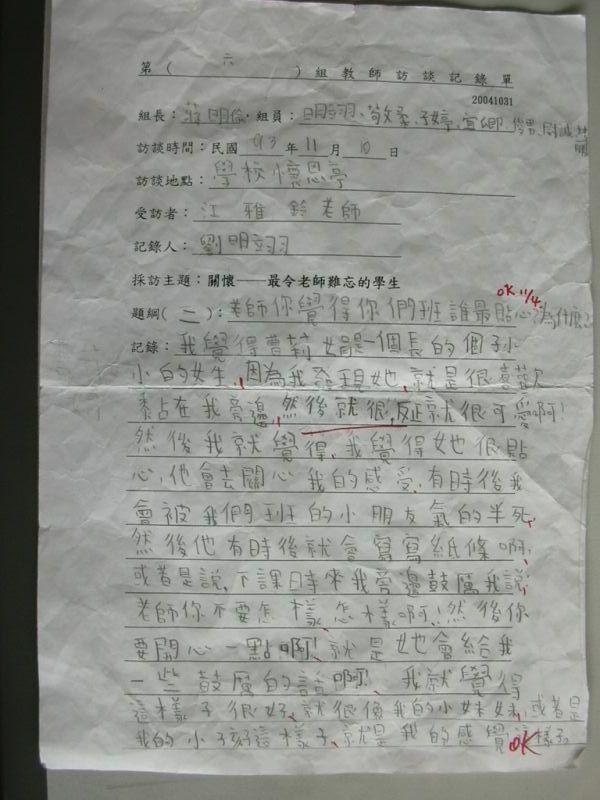 第( 六 )組教師訪談記錄單
20041031
組長:莊明倫.組員:明翊、敬柔、子婷、宜卿、
訪談時間:民國 93 年 11 月 10 日
訪談地點:學校懷恩亭
受訪者:江雅鈴老師
記錄人:劉明翊
採訪主題:關懷——最令老師難忘的學生
OK 11/4.
題綱(二):老師你覺得你們班誰最貼心?為什麼?
記錄:我覺得曹莉娟是一個長的個子小
小的女生,因為我發現她,就是很喜歡
黏在我旁邊,然後就很,反正就很可愛啊!
然後我就覺得,我覺得她很點
心,他會去關心我的感受,有時後我
會被我們班的小朋友氣的半死,
然後他有時後就會寫寫紙條啊,
或者是說,下課時來我旁邊鼓厲我說,
老師你不要怎樣怎樣啊!然後你
要開心一點啊!就是她會給我
一些鼓厲的話啊!、我就覺得
這樣子很好、就很像我的小妹妹,或者是
我的小孩這樣子、就是我的感覺這樣子。
OK